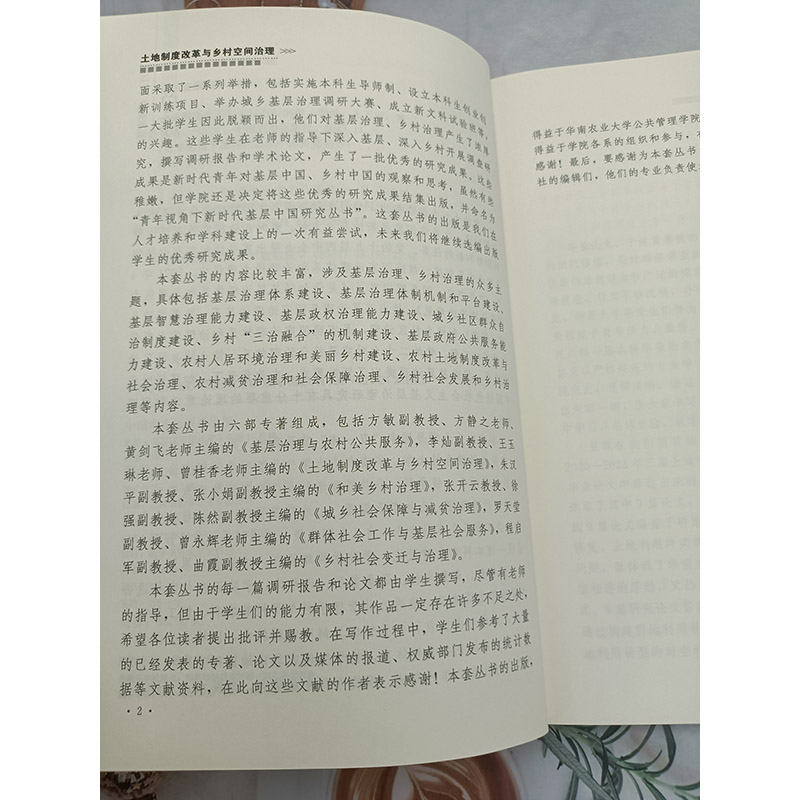 土地制度改革与乡村空间治理 >>>
面采取了一系列举措，包括实施本科生导师制、设立本科生创业创
新训练项目、举办城乡基层治理调研大赛、成立新文科试验班等，
一大批学生因此脱颖而出，他们对基层治理、乡村治理产生了浓厚
的兴趣。这些学生在老师的指导下深入基层、深入乡村开展调查研
究，撰写调研报告和学术论文，产生了一批优秀的研究成果。这些
成果是新时代青年对基层中国、乡村中国的观察和思考，虽然有些
稚嫩，但学院还是决定将这些优秀的研究成果结集出版，并命名为
“青年视角下新时代基层中国研究丛书”。这套丛书的出版是我们在
人才培养和学科建设上的一次有益尝试，未来我们将继续选编出版
学生的优秀研究成果。
本套丛书的内容比较丰富，涉及基层治理、乡村治理的众多主
题，具体包括基层治理体系建设、基层治理体制机制和平台建设、
基层智慧治理能力建设、基层政权治理能力建设、城乡社区群众自
治制度建设、乡村“三治融合”的机制建设、基层政府公共服务能
力建设、农村人居环境治理和美丽乡村建设、农村土地制度改革与
社会治理、农村减贫治理和社会保障治理、乡村社会发展和乡村治
理等内容。
本套丛书由六部专著组成，包括方敏副教授、方静之老师、
黄剑飞老师主编的《基层治理与农村公共服务》，李灿副教授、王玉
琳老师、曾桂香老师主编的《土地制度改革与乡村空间治理》，朱汉
平副教授、张小娟副教授主编的《和美乡村治理》，张开云教授、徐
强副教授、陈然副教授主编的《城乡社会保障与减贫治理》，罗天莹
副教授、曾永辉老师主编的《群体社会工作与基层社会服务》，程启
军副教授、曲霞副教授主编的《乡村社会变迁与治理》。
本套丛书的每一篇调研报告和论文都由学生撰写，尽管有老师
的指导，但由于学生们的能力有限，其作品一定存在许多不足之处，
希望各位读者提出批评并赐教。在写作过程中，学生们参考了大量
的已经发表的专著、论文以及媒体的报道、权威部门发布的统计数
据等文献资料，在此向这些文献的作者表示感谢！本套丛书的出版，
· 2 ·
得益于华南农业大学公共管理学院
得益于学院各系的组织和参与，
感谢！最后，要感谢为本套丛书
社的编辑们，他们的专业负责使